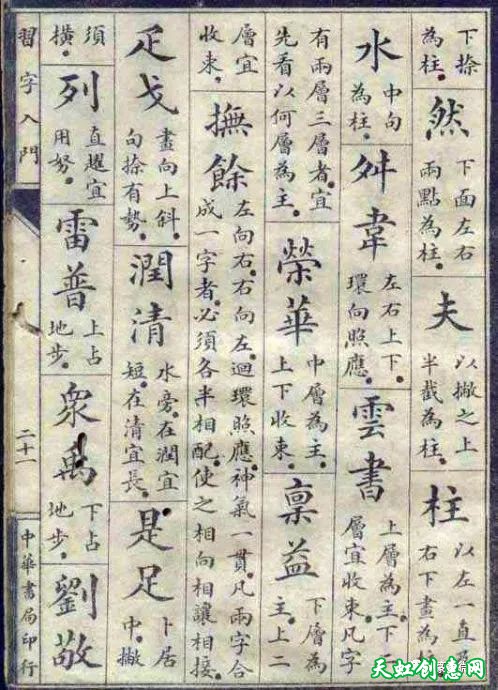 下捺為柱。然下面左右兩點為柱。夫以撇之上半截為柱。柱以左一直及右下畫為柱。
水中句為柱。舛韋左右上下。環向照應。雲書上層為主。下二層宜收束。凡字
有兩層三層者。宜先看以何層為主。榮華中層為主。上下收束。稟益下層為主。上二
層宜收束。撫餘左向右。右向左。迴環照應。神氣一貫。凡兩字合成一字者。必須各半相配。使之相向相讓相接。
疋戈畫向上斜。句捺有勢。潤清水旁。在潤宜短。在清宜長。是足卜居中。撇
須橫。列直趯宜用努。雷普上占地步。衆禹下占地步。劉敬
習字入門
二十一
中華書局印行
天虹创意网